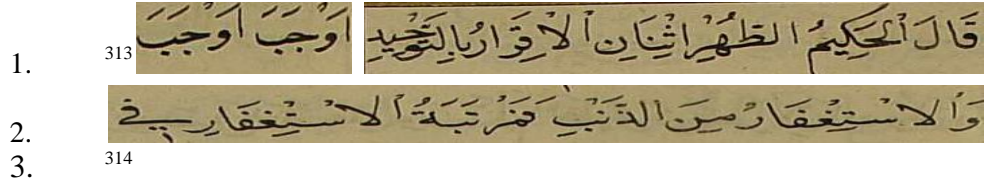 1. قَالَ ٱلْحَكِيمُ الظُّهْرُ اثْنَانِ ٱلْاِقْرَارُ بِالتَّوْحِيدِ اَوْجَبَ اَوْجَبَ 313
2. وَٱلْاسْتِغْفَارُ مِنَ الذَّنْبِ فَمَرْتَبَةُ ٱلْاسْتِغْفَارِ فِي
3. 314